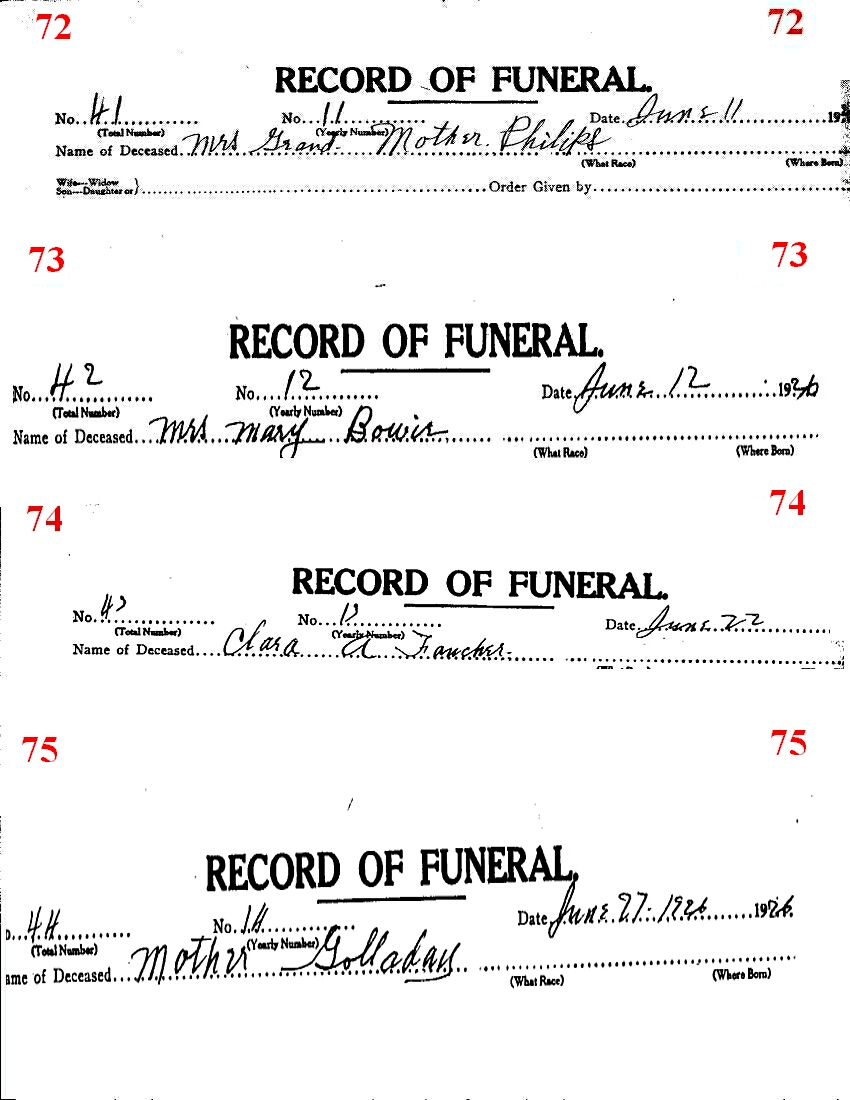 72 72
RECORD OF FUNERAL.
No. 41 No. 11 Date June 11 19
(Total Number) (Yearly Number)
Name of Deceased Mrs Grand Mother Philips
(What Race) (Where Born)
Wife—Widow
Son—Daughter or} Order Given by
73 73
RECORD OF FUNERAL.
No. 42 No. 12 Date June 12 1926
(Total Number) (Yearly Number)
Name of Deceased Mrs Mary Bowie
(What Race) (Where Born)
74 74
RECORD OF FUNERAL.
No. 43 No. 13 Date June 22
(Total Number) (Yearly Number)
Name of Deceased Clara A Faucher
75 75
RECORD OF FUNERAL.
o. 44 No. 14 Date June 27. 1926 1926
(Total Number) (Yearly Number)
ame of Deceased Mother Golladay
(What Race) (Where Born)